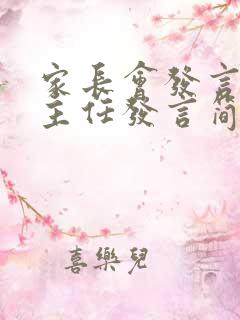 家長會發言
主任發言簡
喜樂兒